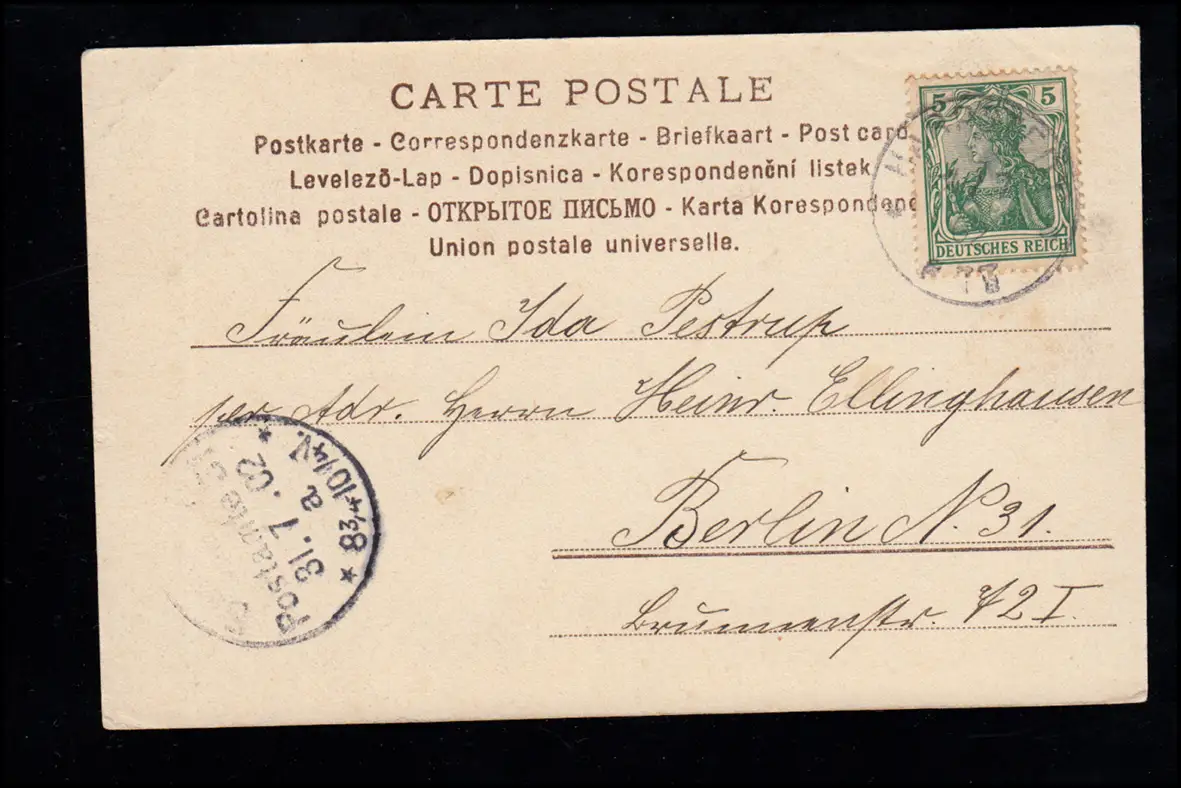 CARTE POSTALE
Postkarte - Correspondenzkarte - Briefkaart - Post card
Levelező-Lap - Dopisnica - Korespondenční listek
Cartolina postale - ОТКРЫТОЕ ПИСЬМО - Karta Korespondenc
Union postale universelle.
5 5
DEUTSCHES REICH
Fräulein Ida Pestrup
per Adr. Herrn Heinr. Ellinghausen
Berlin N. 31.
Brunnenstr. 72 I.
Postamte
31.7.02
a
* 8¾-10¼V. *